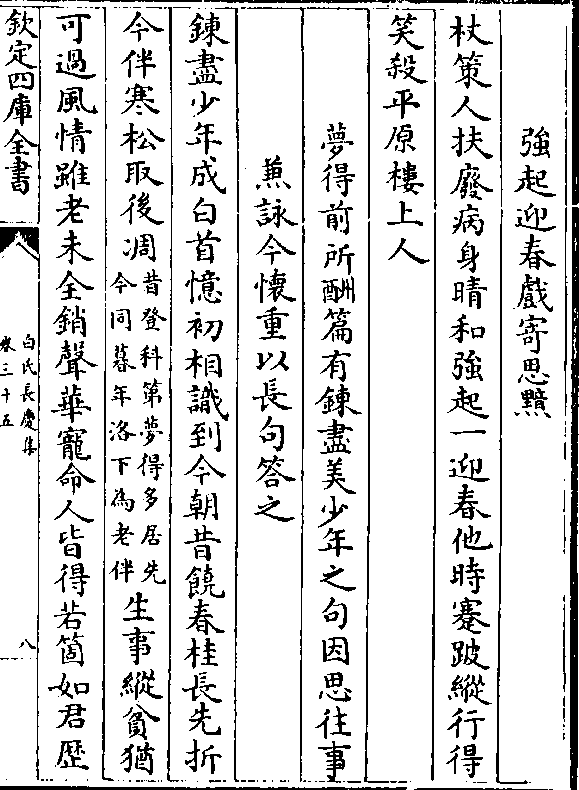 強起迎春戲寄思黯
杖策人扶廢病身晴和強起一迎春他時蹇跛縱行得
笑殺平原樓上人
夢得前所酬篇有鍊盡美少年之句因思往事
兼詠今懷重以長句答之
鍊盡少年成白首憶初相識到今朝昔饒春桂長先折
今伴寒松取後凋昔登科第夢得多居先
今同暮年洛下為老伴生事縱貧猶
可過風情雖老未全銷聲華寵命人皆得若箇如君歴
欽定四庫全書
白氏長慶集
卷三十五
八